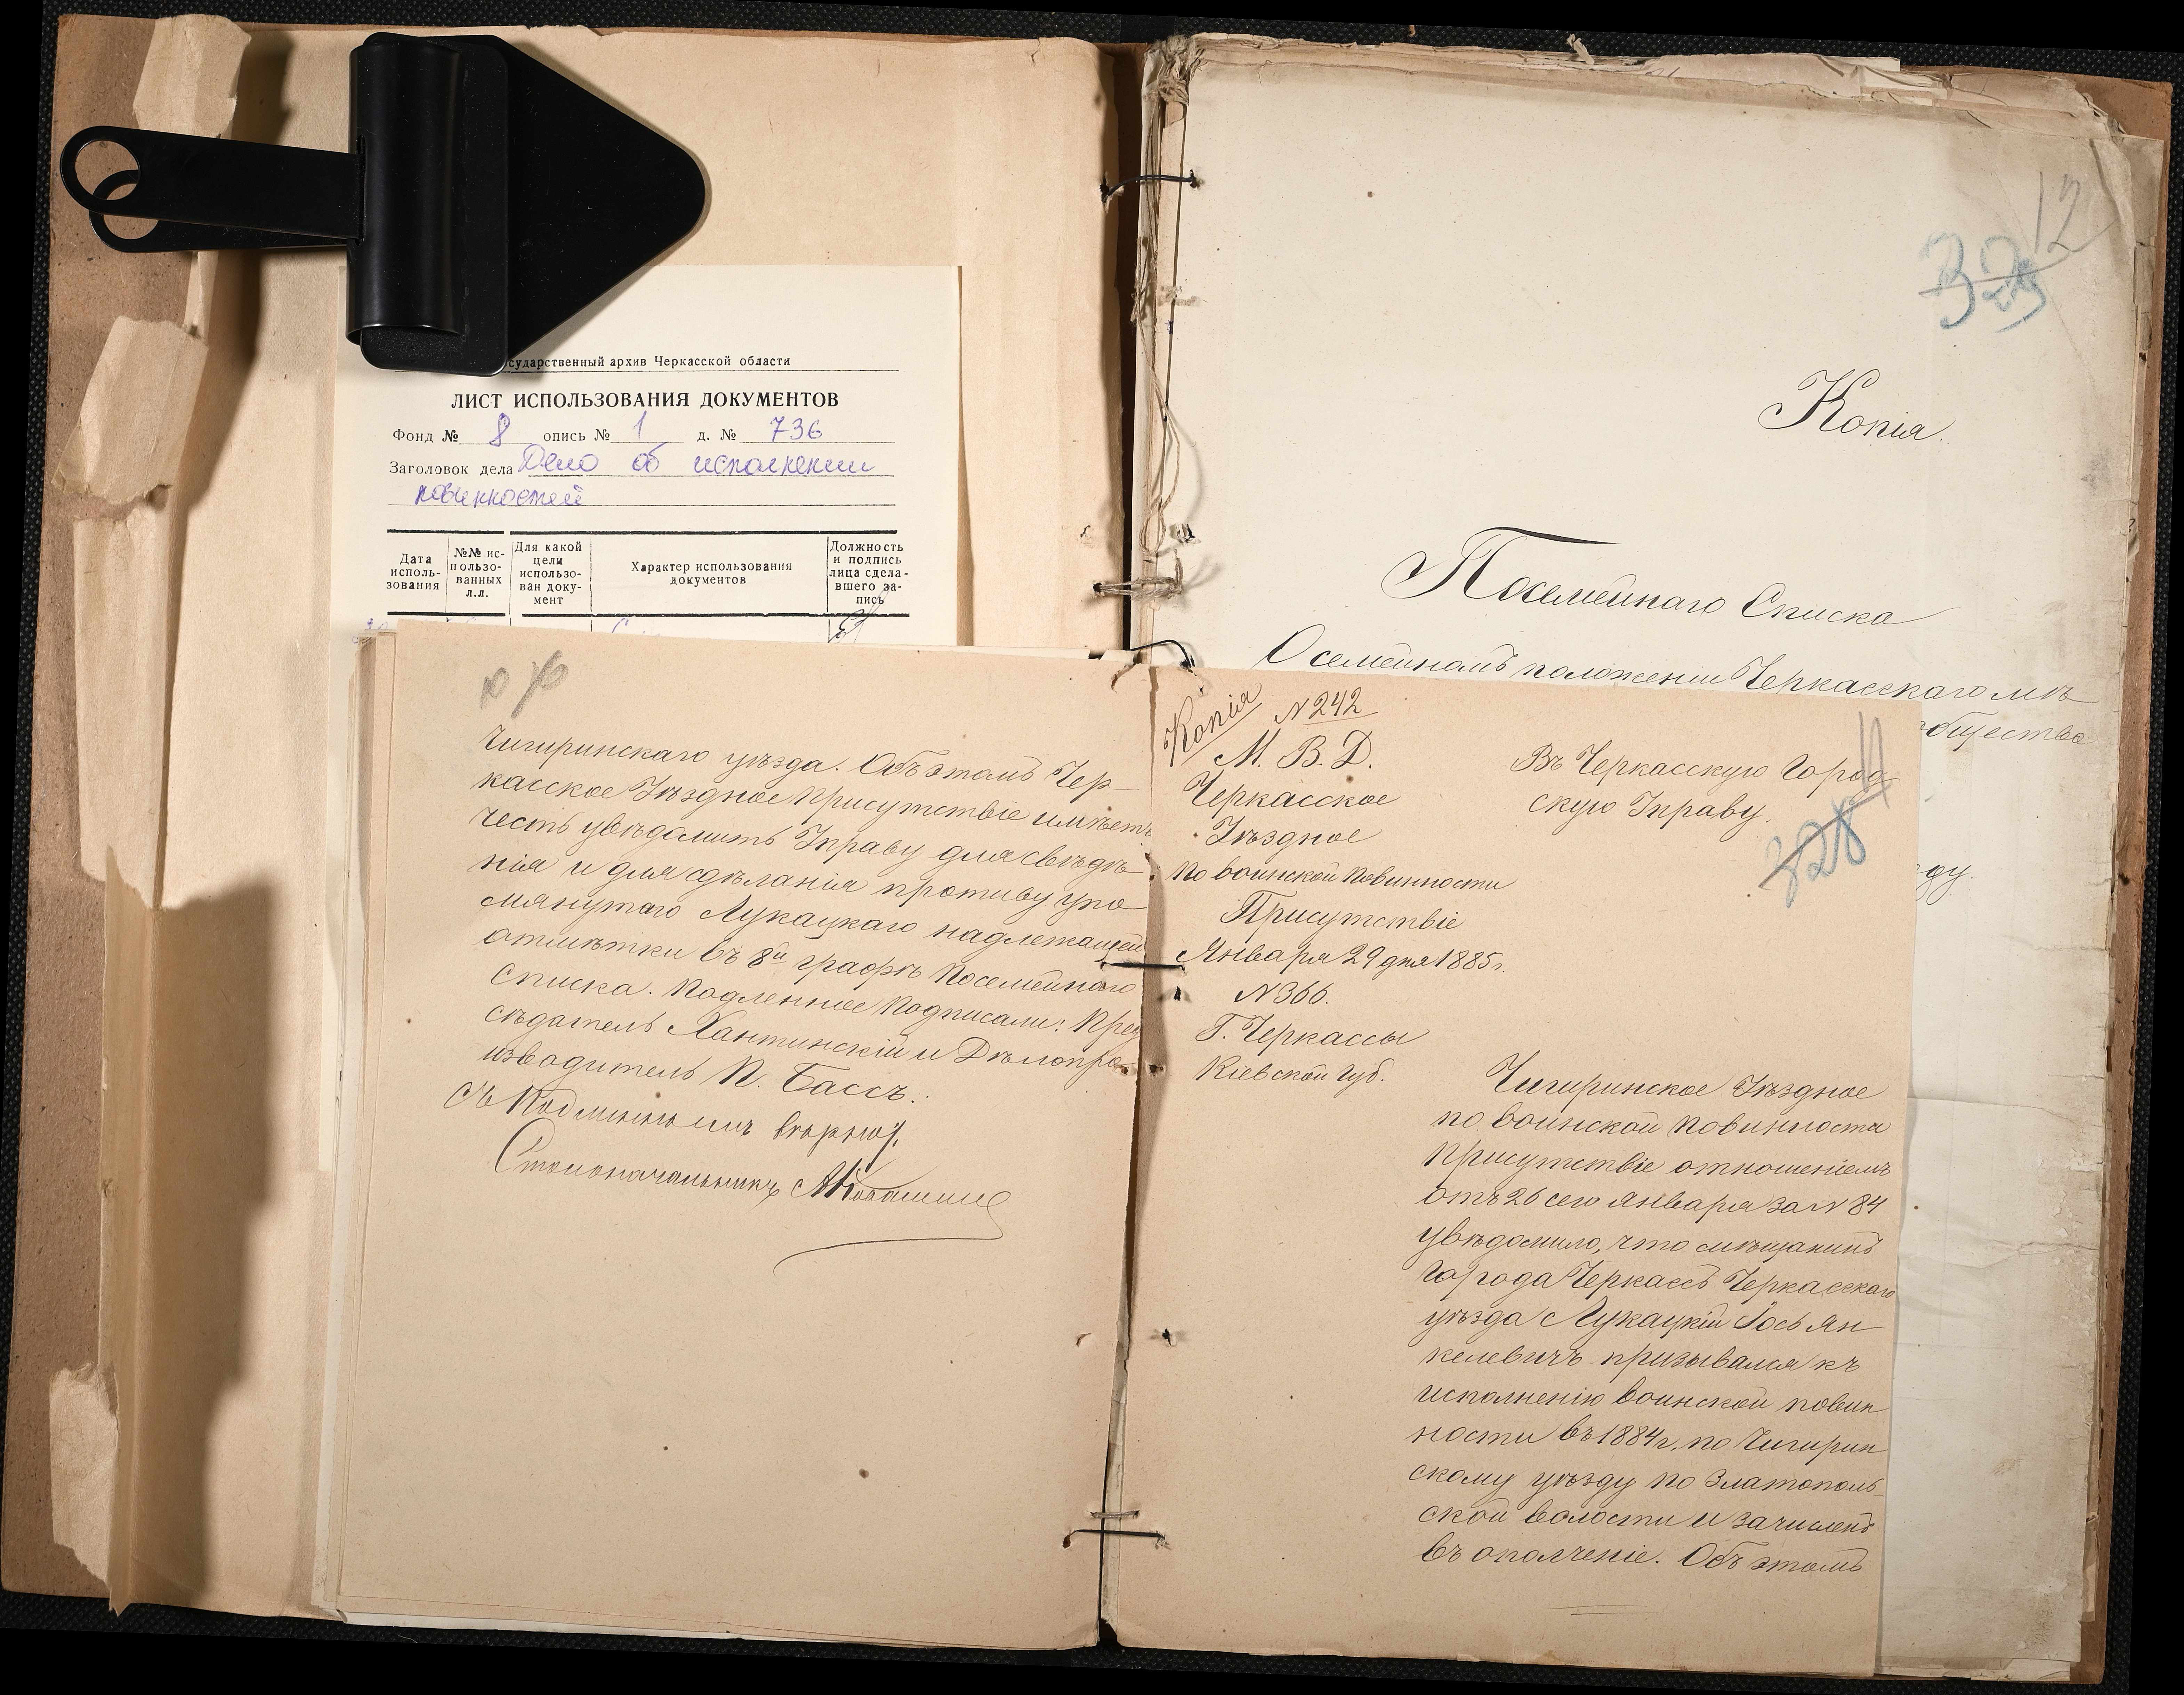 сударственный архив Черкасской области
ЛИСТ ИСПОЛЬЗОВАНИЯ ДОКУМЕНТОВ
Фонд № 8 опись № 1 д. № 736
Заголовок дела Дело об исполнении
повинностей
Дата исполь-зования
№№ ис-пользо-ванных л.л.
Для какой цели использо-ван доку-мент
Характер использования документов
Должность и подпись лица сдела-вшего за-пись
Чигиринскаго уѣзда. Объ этомъ Чер-
касское Уѣздное Присутствіе имѣетъ
честь увѣдомить Управу для свѣдѣ-
нія и для сдѣланія противу упо-
мянутаго Лукацкаго надлежащей
отмѣтки въ 8й графѣ Посемейнаго
списка. Подленное Подписали: Пред
сѣдатель Хантинскій и Дѣлопро-
изводитель П. Бассъ.
Съ Подлиннымъ вѣрно:
Столоначальникъ
12
329
Копія.
Посемейнаго Списка
О семейномъ положеніи Черкасскаго мѣ
общества
ду.
Копія
N 242
М. В. Д.
Черкасское
Уѣздное
По воинской Повинности
Присутствіе
Января 29 дня 1885 г.
N 366.
Г. Черкассы
Кіевской Губ.
11
Въ Черкасскую Город-
скую Управу.
328
Чигиринское Уѣздное
по воинской Повинности
Присутствіе отношеніемъ
отъ 26 сего Января за N 84
увѣдомило, что мѣщанинъ
города Черкассъ Черкасскаго
уѣзда Лукацкій Іось Ян-
келевичъ призывался къ
исполненію воинской повин
ности въ 1884 г. по Чигирин
скому уѣзду по Златополь-
ской волости и зачисленъ
въ ополченіе. Объ этомъ